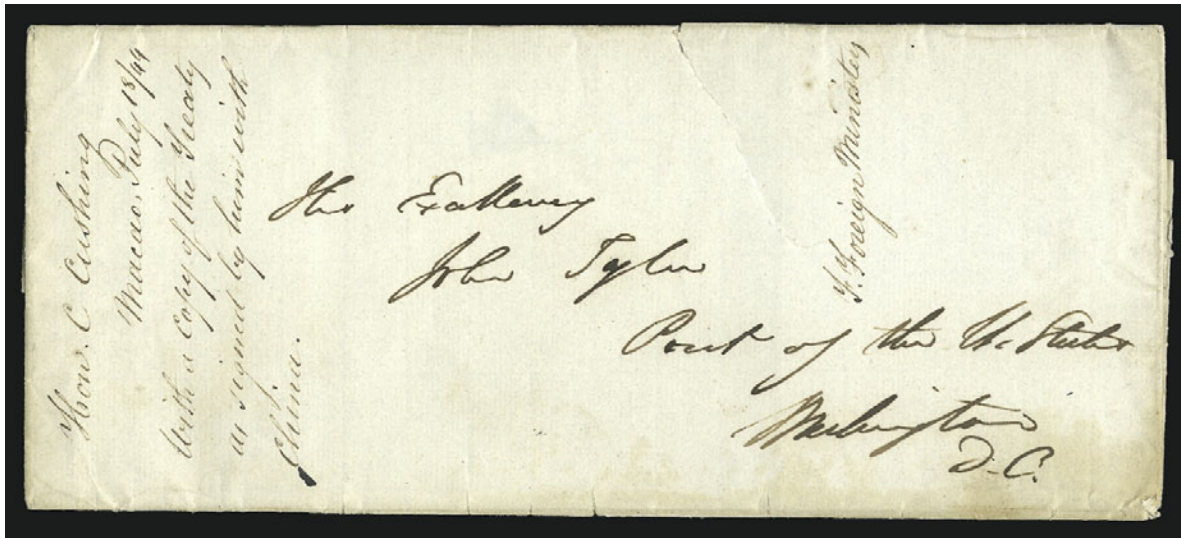 Hon. C Cushing
Macao, July 18/44
With a Copy of the Treaty
as signed by him with
China.
His Excellency
John Tyler
Presit of the U. States
Washington
D. C.
F. Foreign Ministry